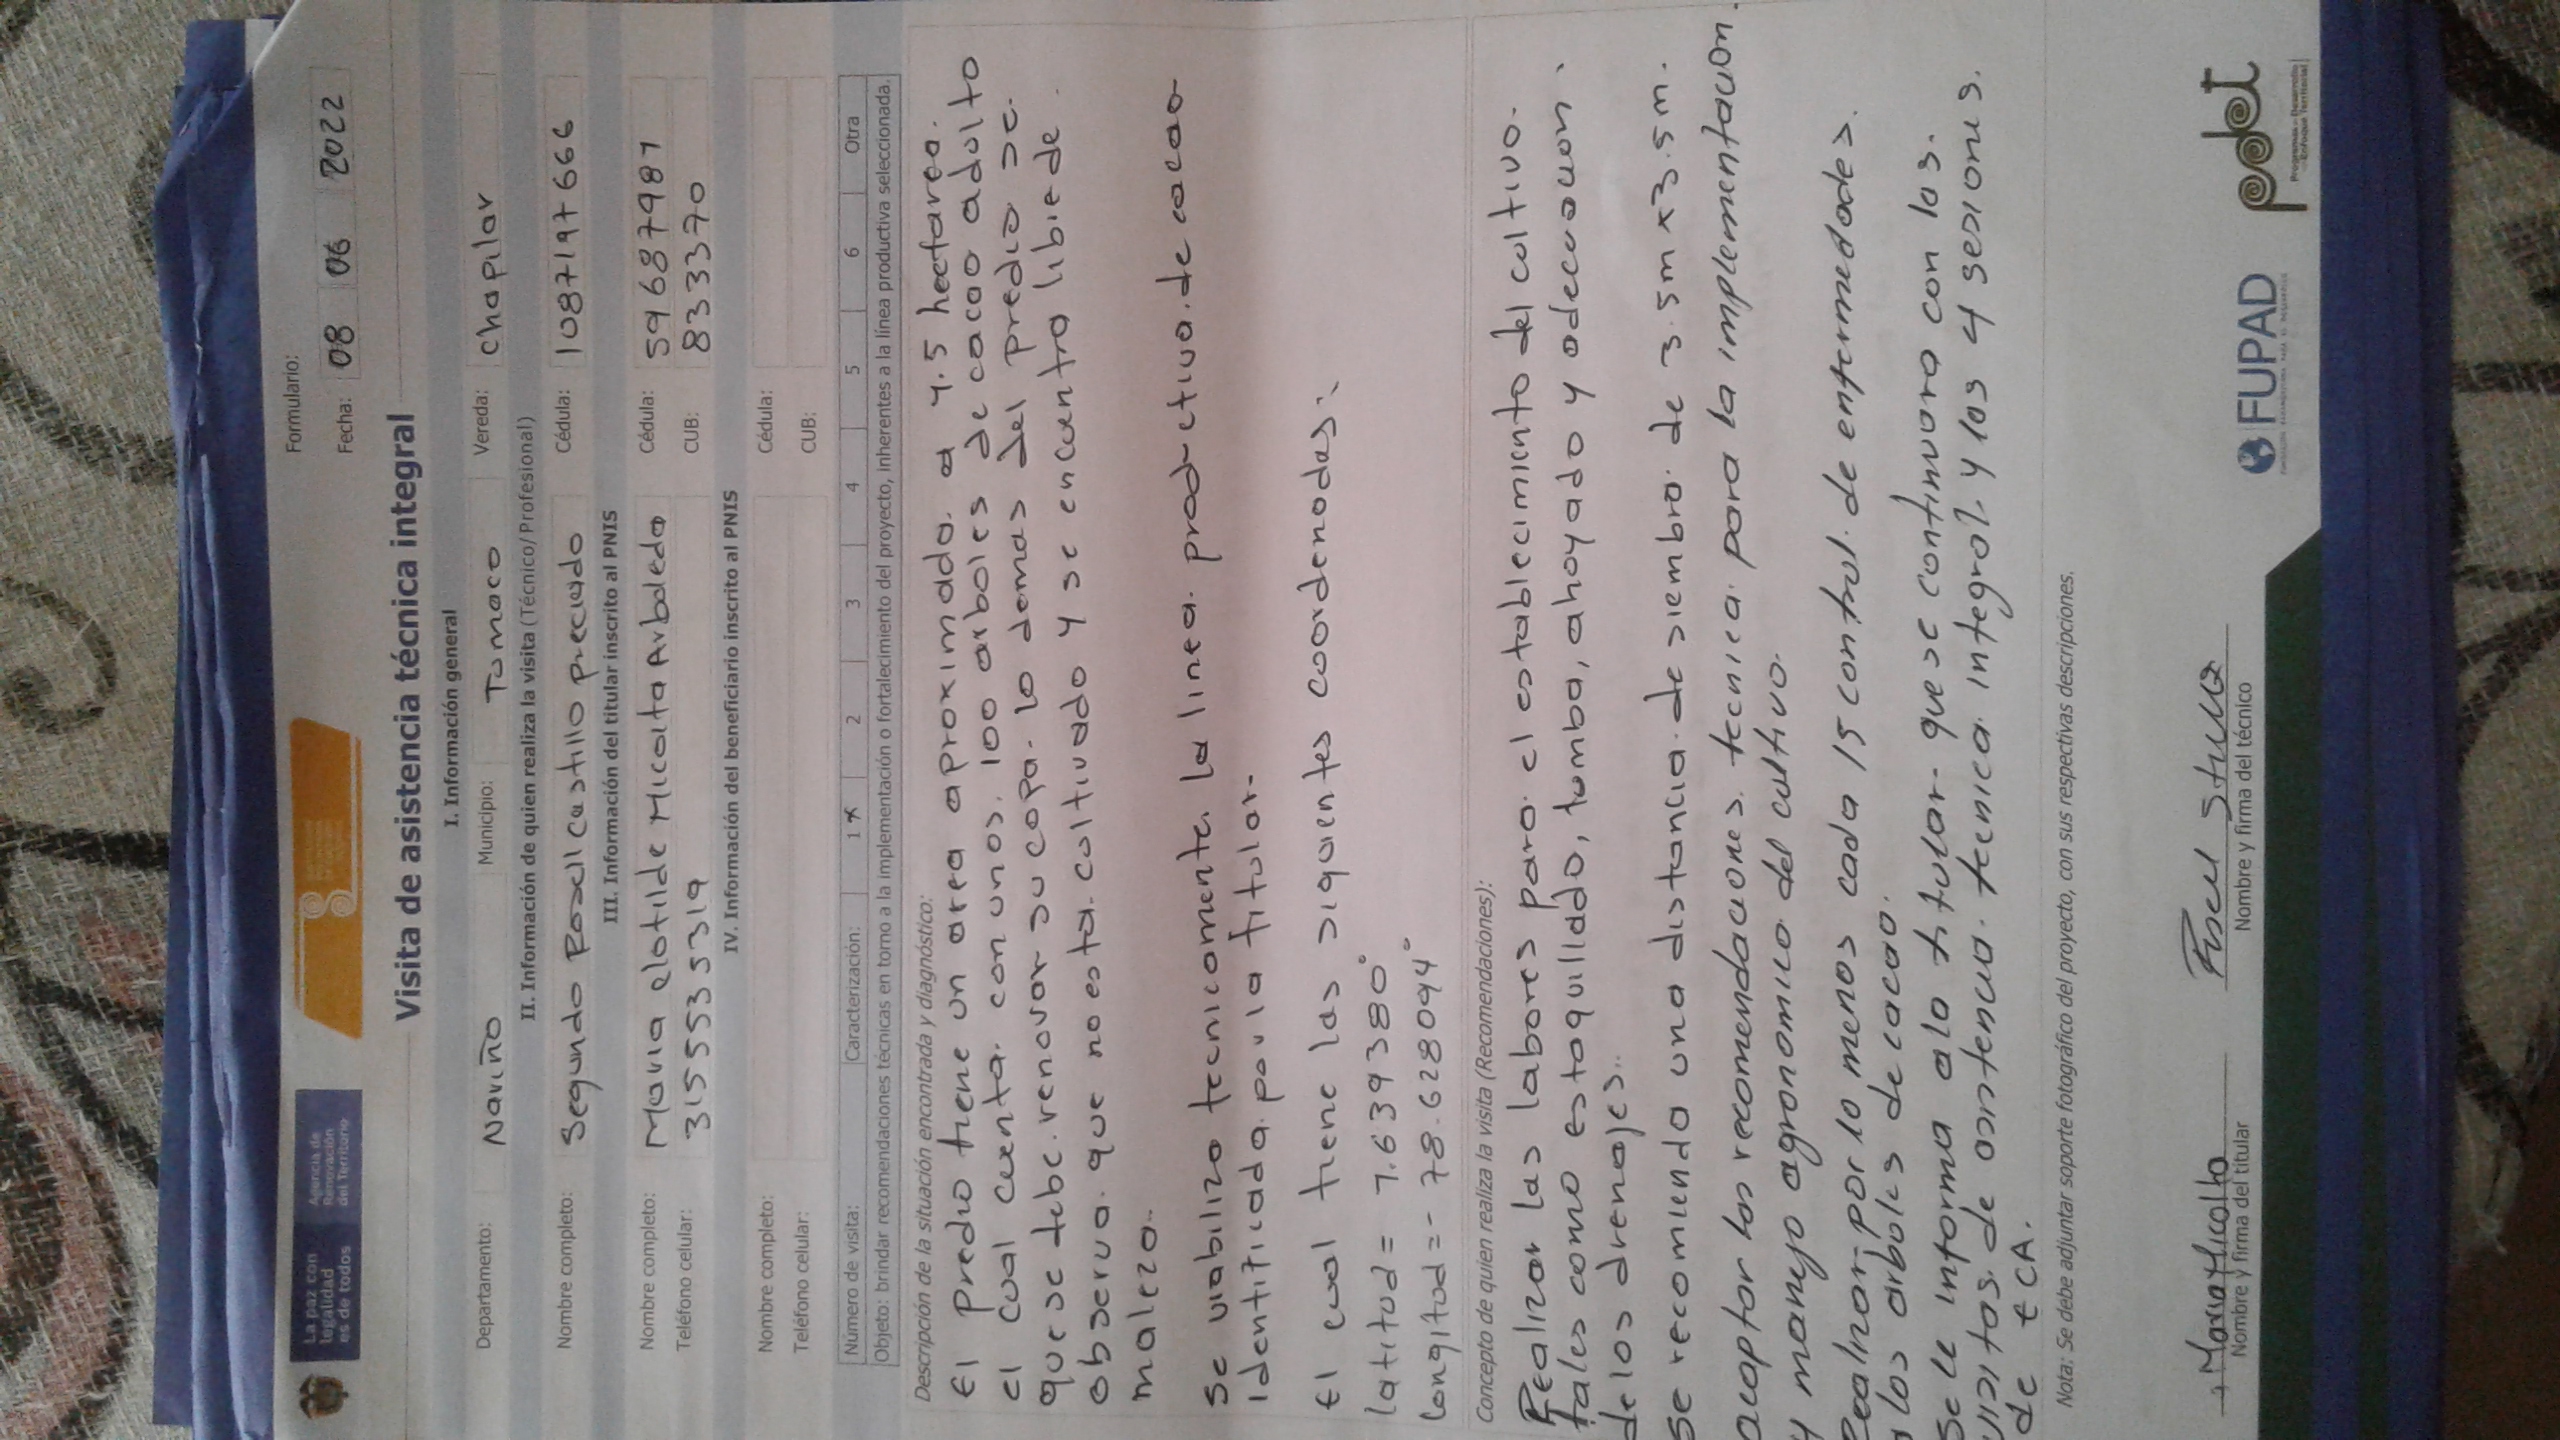 La paz con
legalidad
es de todos
Agencia de
Renovación
del Territorio
Formulario:
Fecha: 08 06 2022
Visita de asistencia técnica integral
I. Información general
Departamento: Nariño Municipio: Tumaco Vereda: chapilar
II. Información de quien realiza la visita (Técnico/ Profesional)
Nombre completo: Segundo Posell castillo preciado Cédula: 1087197666
III. Información del titular inscrito al PNIS
Nombre completo: Maria clotilde Micolta Arboleda Cédula: 59687981
Teléfono celular: 3155535319 CUB: 833370
IV. Información del beneficiario inscrito al PNIS
Nombre completo: Cédula:
Teléfono celular: CUB:
Número de visita: Caracterización: 1 x 2 3 4 5 6 Otra
Objeto: brindar recomendaciones técnicas en torno a la implementación o fortalecimiento del proyecto, inherentes a la línea productiva seleccionada.
Descripción de la situación encontrada y diagnóstico:
El predio tiene un area aproximado. a 4.5 hectarea.
el cual cuenta. con unos. 100 arboles de cacao adulto
que se debe. renovar su copa. lo demas del predio se.
observa. que no esta. cultivado y se encuentra libre de.
malezo..
Se viabilizo tecnicamente. la linea. productiva. de cacao
identificada. por la titular.
El cual tiene las siguientes coordenadas:
latitud = 1.639380°
longitud = - 78.628094°
Concepto de quien realiza la visita (Recomendaciones):
Realizar las labores para. el establecimiento del cultivo.
tales como estaquillado, tumba, ahoyado y adecuacion.
de los drenajes..
Se recomienda una distancia. de siembra. de 3.5m x 3.5m.
acoptar las recomendaciones. tecnica. para la implementacion.
y manejo agronomico. del cultivo.
Realizar. por lo menos cada 15 control. de enfermedades.
a los arboles de cacao.
Se le informa a la titular. que se continuara con las.
visitas. de asistencia. tecnica. integral. y las 4 sesiones.
de ECA.
Nota: Se debe adjuntar soporte fotográfico del proyecto, con sus respectivas descripciones.
Maria Micolta
Nombre y firma del titular
Nombre y firma del técnico
FUPAD
pdet
Programas de Desarrollo
con Enfoque Territorial